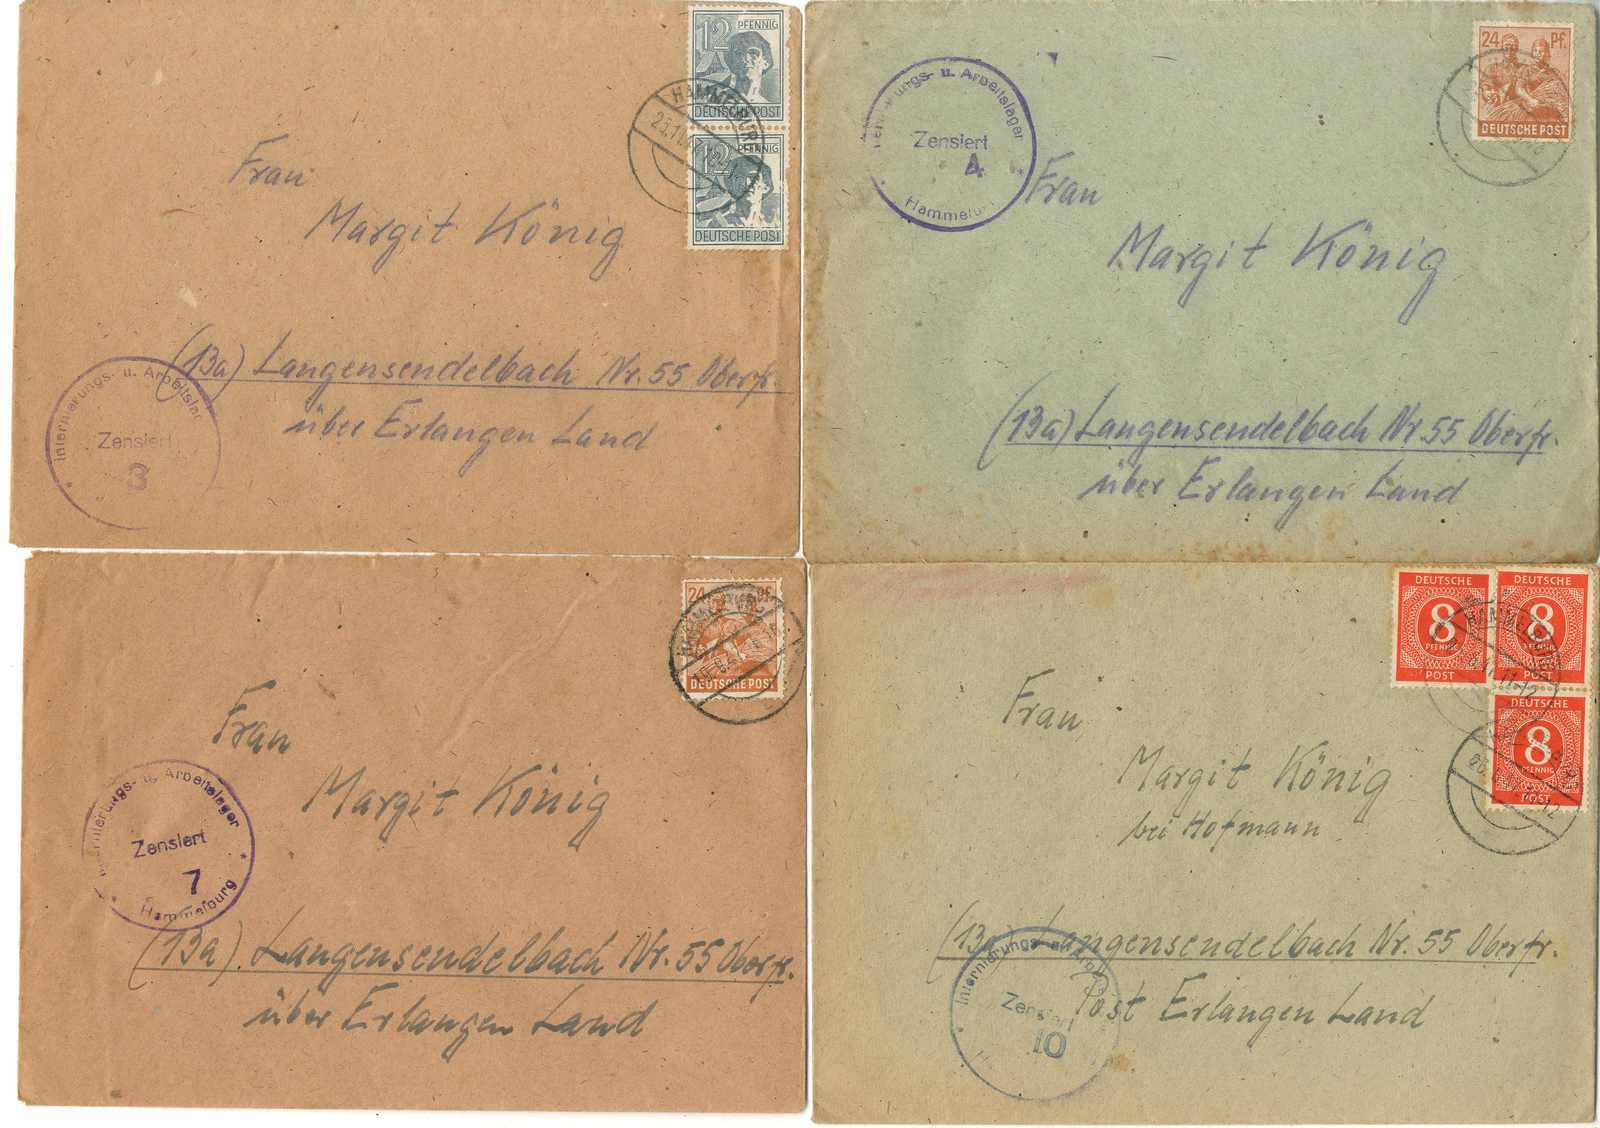 12 PFENNIG
DEUTSCHE POST
12 PFENNIG
DEUTSCHE POST
HAMMELBUR
Frau
Margit König
(13a) Langensendelbach Nr. 55 Oberfr.
über Erlangen Land
Internierungs- u. Arbeitslar
Zensiert
3
24 Pf.
DEUTSCHE POST
u. Arbeitslager
Zensiert
4
Hammelbur
Frau
Margit König
(13a) Langensendelbach Nr. 55 Oberfr.
über Erlangen Land
24 Pf.
DEUTSCHE POST
Frau
Margit König
u. Arbeitslager
Zensiert
7
Hammelburg
(13a) Langensendelbach Nr. 55 Oberfr.
über Erlangen Land
DEUTSCHE
8
PFENNIG
POST
DEUTSCHE
8
PFENNIG
POST
DEUTSCHE
8
PFENNIG
POST
11-12
Frau
Margit König
bei Hofmann
(13a) Langensendelbach Nr. 55 Oberfr.
Post Erlangen Land
Internierungs- u. Arbei
Zensiert
10